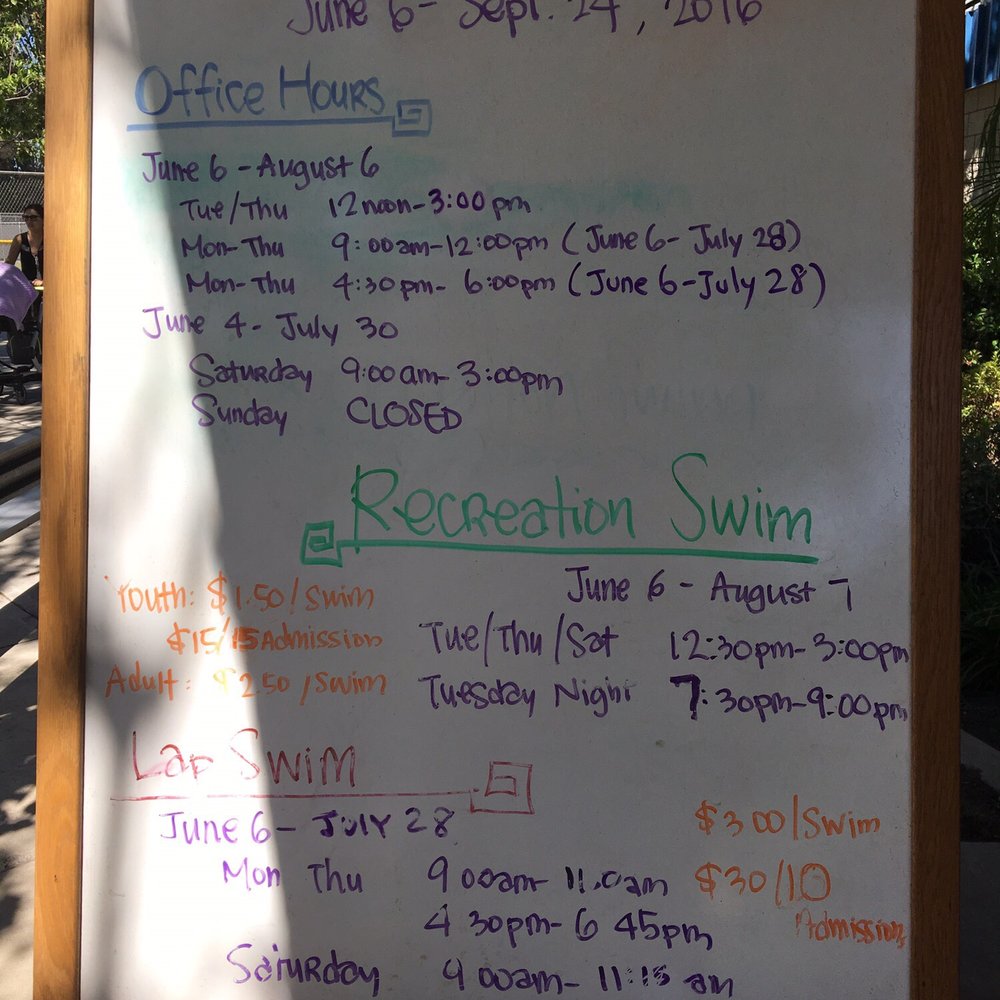 June 6- Sept. 24, 2016
Office Hours
June 6 - August 6
Tue/Thu 12noon-3:00pm
Mon-Thu 9:00am-12:00pm (June 6- July 28)
Mon-Thu 4:30pm- 6:00pm (June 6-July 28)
June 4 - July 30
Saturday 9:00am- 3:00pm
Sunday CLOSED
Recreation Swim
June 6 - August 7
Youth: $1.50/Swim
$15/15 Admission
Adult: $2.50/Swim
Tue/Thu/Sat 12:30pm-3:00pm
Tuesday Night 7:30pm-9:00pm
Lap Swim
June 6- JULY 28
Mon Thu 9 00am- 11.0am
4 30pm- 6 45pm
Saturday 9 00am- 11:15 am
$3 00/Swim
$30/10
Admission